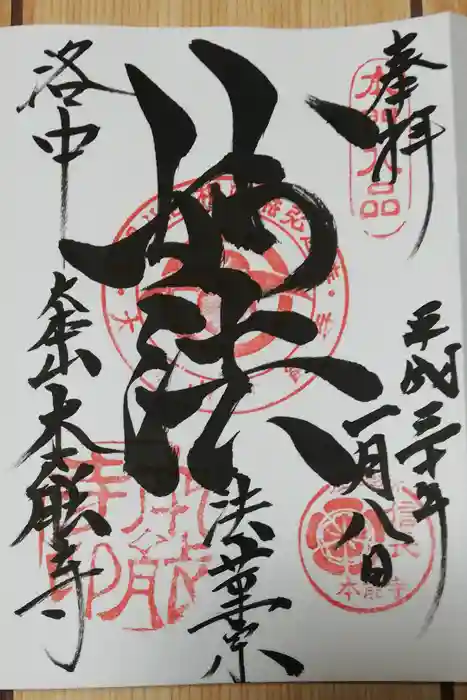 奉拝
平成三十年
一月八日
妙法
法華宗
洛中
大本山本能寺
信長
本能寺